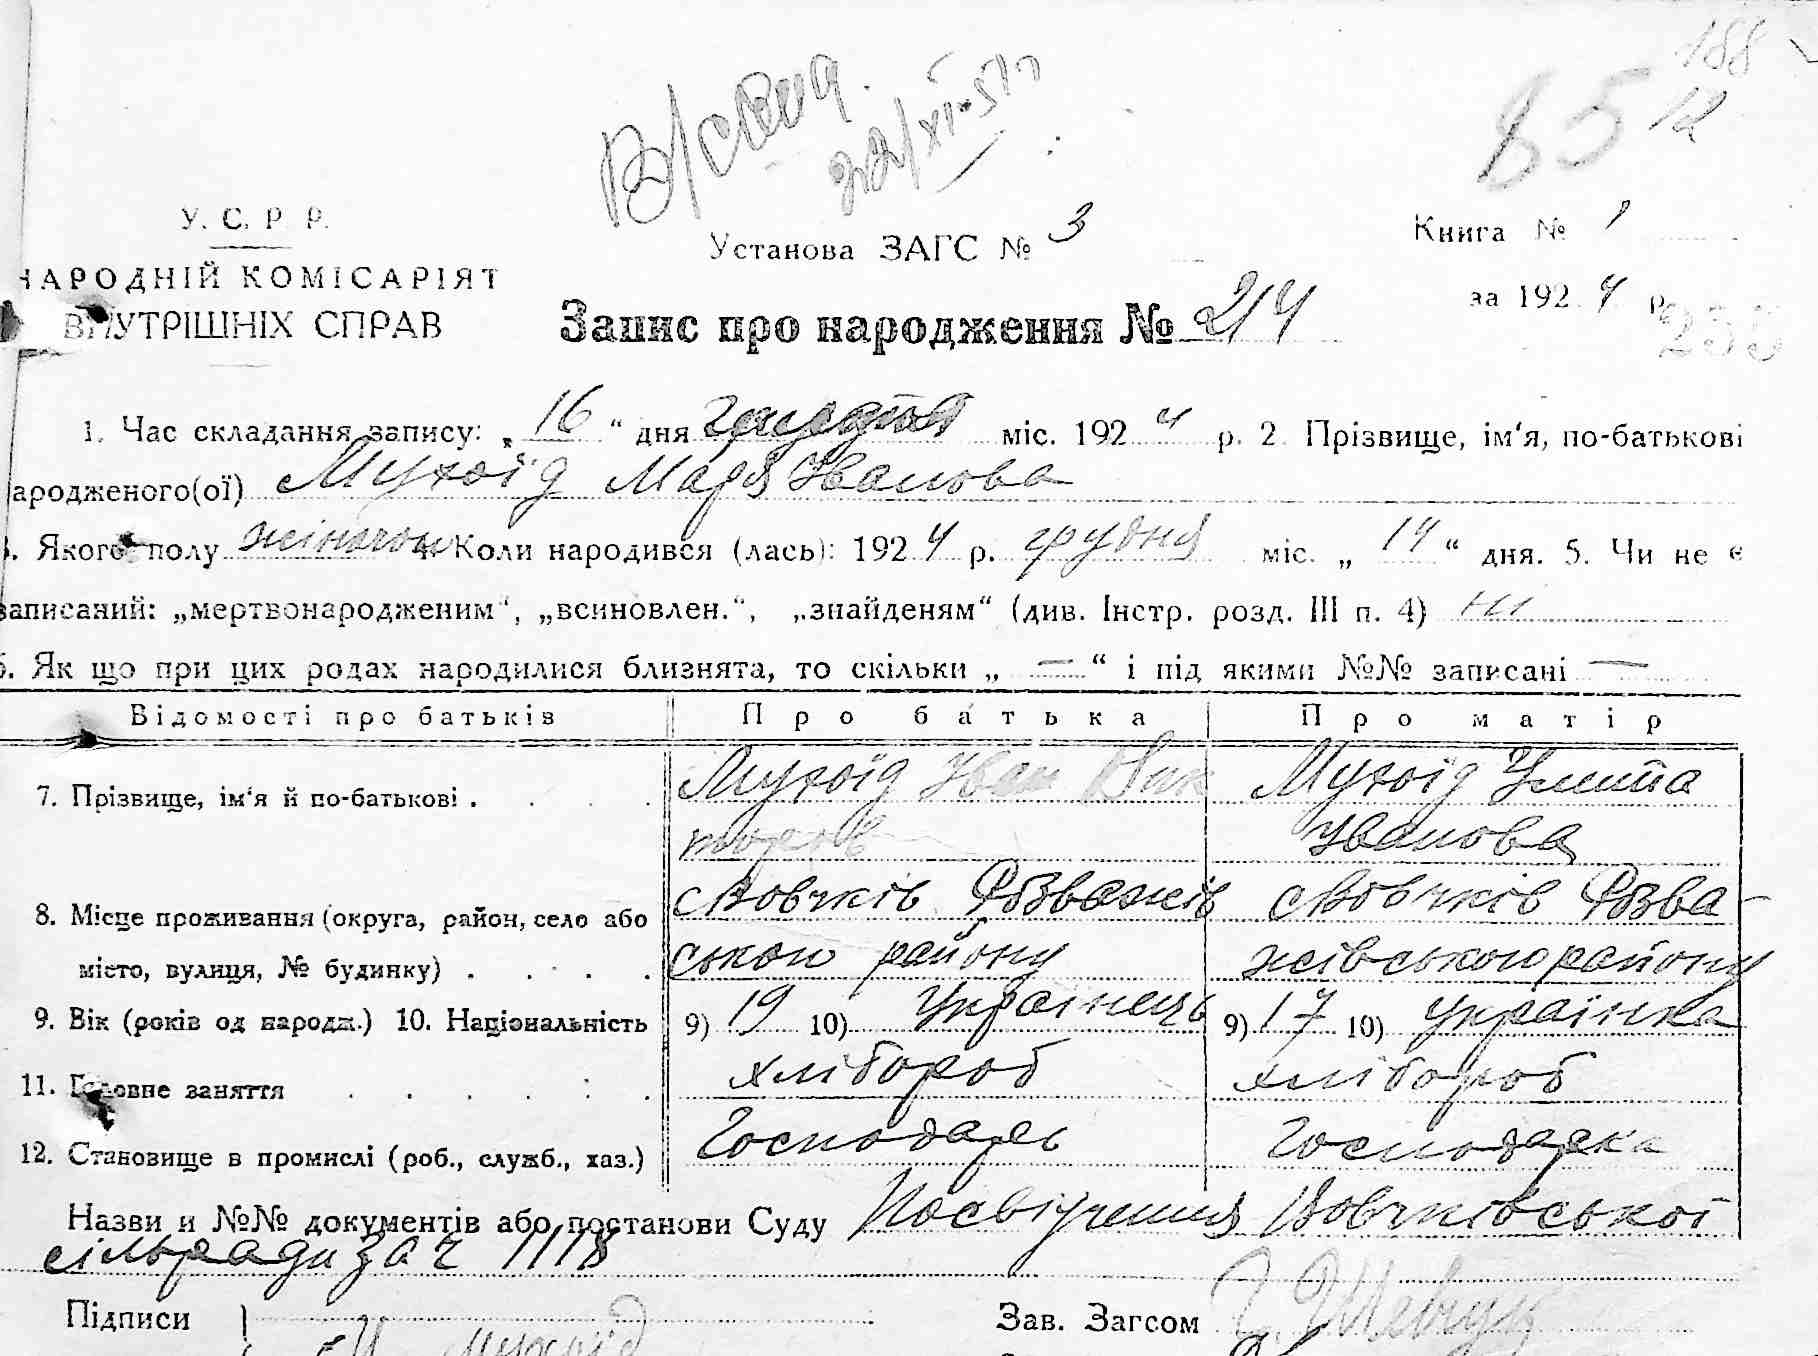 188
85 12
22/XI-51
У. С. Р. Р.
Установа ЗАГС № 3
Книга № 1
НАРОДНІЙ КОМІСАРІЯТ
ВНУТРІШНІХ СПРАВ
за 1924 р.
235
Запис про народження № 214
1. Час складання запису: „16“ дня грудня міс. 1924 р. 2. Прізвище, ім‘я, по-батькові
ародженого(ої) Мухоїд Марія Іванова
3. Якого полу жіночого 4. Коли народився (лась): 1924 р. грудня міс. „14“ дня. 5. Чи не є
записаний: „мертвонародженим“, „всиновлен.“, „знайденям“ (див. Інстр. розд. III п. 4) ні
6. Як що при цих родах народилися близнята, то скільки „—“ і під якими №№ записані —
Відомості про батьків Про батька Про матір
7. Прізвище, ім‘я й по-батькові . . . . Мухоїд Іван Вик Мухоїд Улита
торов Іванова
8. Місце проживання (округа, район, село або с Вовчків Розважів с Вовчків Розва-
місто, вулиця, № будинку) . . . . ського району жівського району
9. Вік (років од народж.) 10. Національність 9) 19 10) Українець 9) 17 10) Українка
11. Головне заняття . . . . . . хлібороб хлібороб
12. Становище в промислі (роб., служб., хаз.) Господарь Господарка
Назви и №№ документів або постанови Суду Посвідчення Вовчківської
сільради за ч 1118
Підписи Мухоїд Зав. Загсом Шевчук